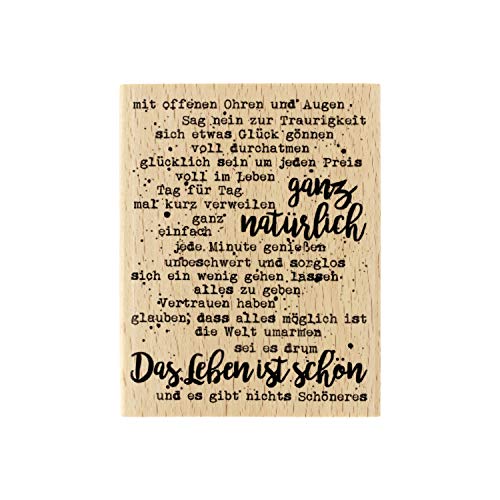 mit offenen Ohren und Augen
Sag nein zur Traurigkeit
sich etwas Glück gönnen
voll durchatmen
glücklich sein um jeden Preis
voll im Leben
Tag für Tag
mal kurz verweilen
ganz
einfach
ganz
natürlich
jede Minute genießen
unbeschwert und sorglos
sich ein wenig gehen lassen
alles zu geben
Vertrauen haben
glauben, dass alles möglich ist
die Welt umarmen
sei es drum
Das Leben ist schön
und es gibt nichts Schöneres